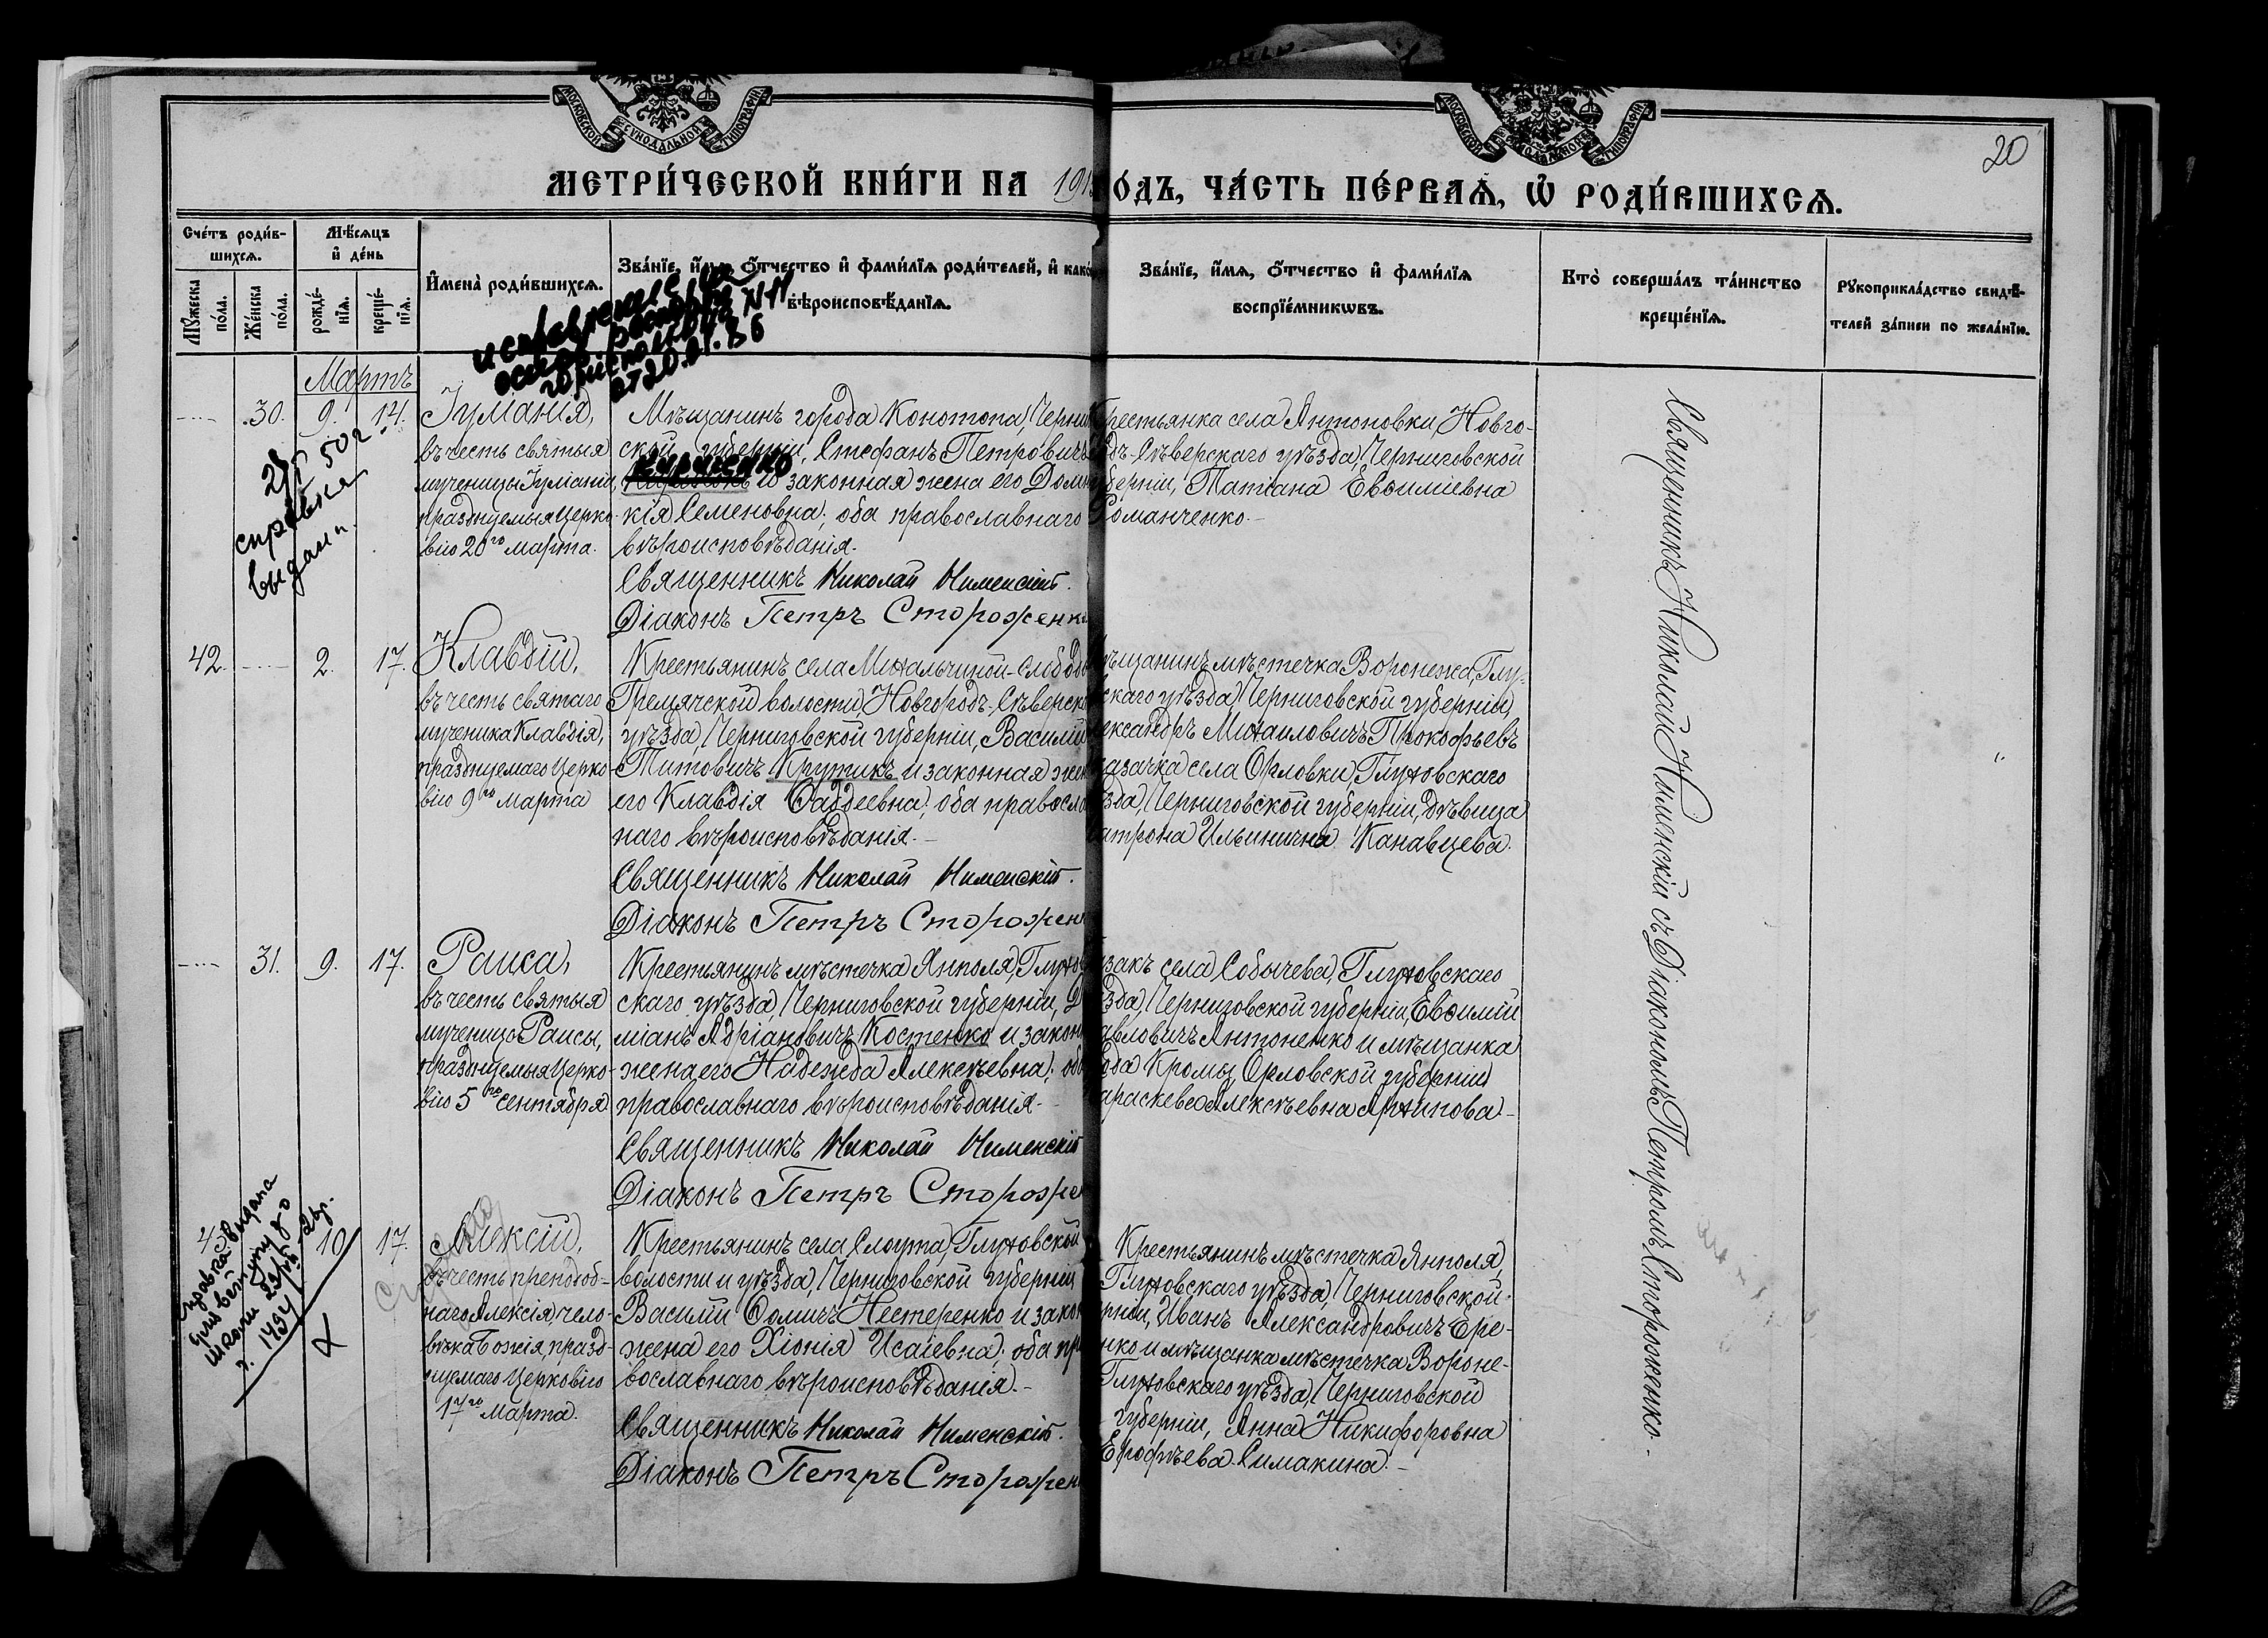 МОСКОВСКОЙ СУНОДАЛЬНОЙ ТИПОГРАФІИ
МОСКОВСКОЙ СУНОДАЛЬНОЙ ТИПОГРАФІИ
20
МЕТРИ́ЧЕСКОЙ КНИ́ГИ НА 191
О́ДЪ, ЧА́СТЬ ПЕ́РВАѦ, Ѿ РОДИ́ВШИХСѦ.
Сче́тъ роди́в-
шихсѧ.
Мѣ́сѧцъ
и҆ де́нь
Мꙋ́жеска по́ла.
Же́нска по́ла.
рожде́-
нїѧ.
креще́-
нїѧ.
И҆мена̀ роди́вшихсѧ.
Зва́нїе, и҆́мѧ, ѻ҆́тчество и҆ фами́лїѧ роди́телей, и҆ како́
вѣроисповѣ́данїѧ.
Зва́нїе, и҆́мѧ, ѻ҆́тчество и҆ фами́лїѧ
воспрїе́мникѡвъ.
Кто̀ соверша́лъ та́инство
креще́нїѧ.
Рꙋкоприкла́дство свидѣ́-
телей за́писи по жела́нїю.
от 20.
Мартъ
30. 9. 14.
Іуліанія,
въ честь святыя
мученицы Іуліаніи,
празднуемыя Церко-
вію 20го марта.
справка
выдана.
Мѣщанинъ города Конотопа, Черни
ской губерніи, Стефанъ Петровичъ
Кириенко
и законная жена его Дом
кія Семеновна; оба православнаго
вѣроисповѣданія.
Священникъ Николай Нименскій.
Діаконъ Петръ Стороженк
рестьянка села Антоновки, Новго-
дъ-Сѣверскаго уѣзда, Черниговской
берніи, Татіана Евѳиміевна
Романченко.
42. 2. 17.
Клавдій,
въ честь святаго
мученика Клавдія,
празднуемаго Церко-
вію 9го Марта
Крестьянинъ села Михальчиной-Слобод
Гремячской волости, Новгородъ-Сѣверск
уѣзда, Черниговской губерніи, Василій
Титовичъ Крутикъ и законная же
его Клавдія Ѳаддеевна; оба правосла
наго вѣроисповѣданія.
Священникъ Николай Нименскій.
Діаконъ Петръ Сторожен
ѣщанинъ мѣстечка Воронежа, Глу-
скаго уѣзда, Черниговской губерніи,
ександръ Михаиловичъ Прокофьевъ
казачка села Орловки, Глуховскаго
зда, Черниговской губерніи, дѣвица
атрона Ильинична Канавцева.
31. 9. 17.
Раиса,
въ честь святыя
мученицы Раисы,
празднуемыя Церко-
вію 5го сентября
Крестьянинъ мѣстечка Янполя, Глухов
скаго уѣзда, Черниговской губерніи, Д
міанъ Адріановичъ Костенко и закон
жена его Надежда Алексѣевна; об
православнаго вѣроисповѣданія.
Священникъ Николай Нименскій
Діаконъ Петръ Стороже
закъ села Собычева, Глуховскаго
зда, Черниговской губерніи, Евѳимій
авловичъ Антоненко и мѣщанка
ода Кромы, Орловской губерніи
араскева Алексѣевна Архипова
10 17.
Алексій,
въ честь преподоб-
наго Алексія, чело-
вѣка Божія, празд-
нуемаго Церковію
17го Марта.
справка выдана
Крестьянинъ села Слоута, Глуховской
волости и уѣзда, Черниговской губерніи
Василій Ѳомичъ Нестеренко и закон
жена его Хіонія Исаіевна; оба пр
вославнаго вѣроисповѣданія.
Священникъ Николай Нименскій.
Діаконъ Петръ Сторожен
Крестьянинъ мѣстечка Янполя,
Глуховскаго уѣзда, Черниговской
рніи, Иванъ Александровичъ Ере-
нко и мѣщанка мѣстечка Вороне-
Глуховскаго уѣзда, Черниговской
губерніи, Анна Никифоровна
Ерофѣева-Симакина.
Священникъ Николай Нименскій съ Діакономъ Петромъ Стороженко.